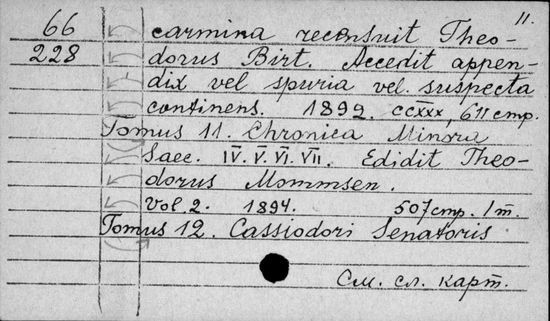 11.
66 carmina recensuit Theo-
228 dorus Birt. Accedit appen-
dix vel spuria vel suspecta
continens. 1892. CCXXX, 611 стр.
Tomus 11. Chronica Minora
Saec. IV. V. VI. VII. Edidit Theo-
dorus Mommsen.
Vol. 2. 1894. 507 стр. 1 т.
Tomus 12. Cassiodori Senatoris
См. сл. карт.